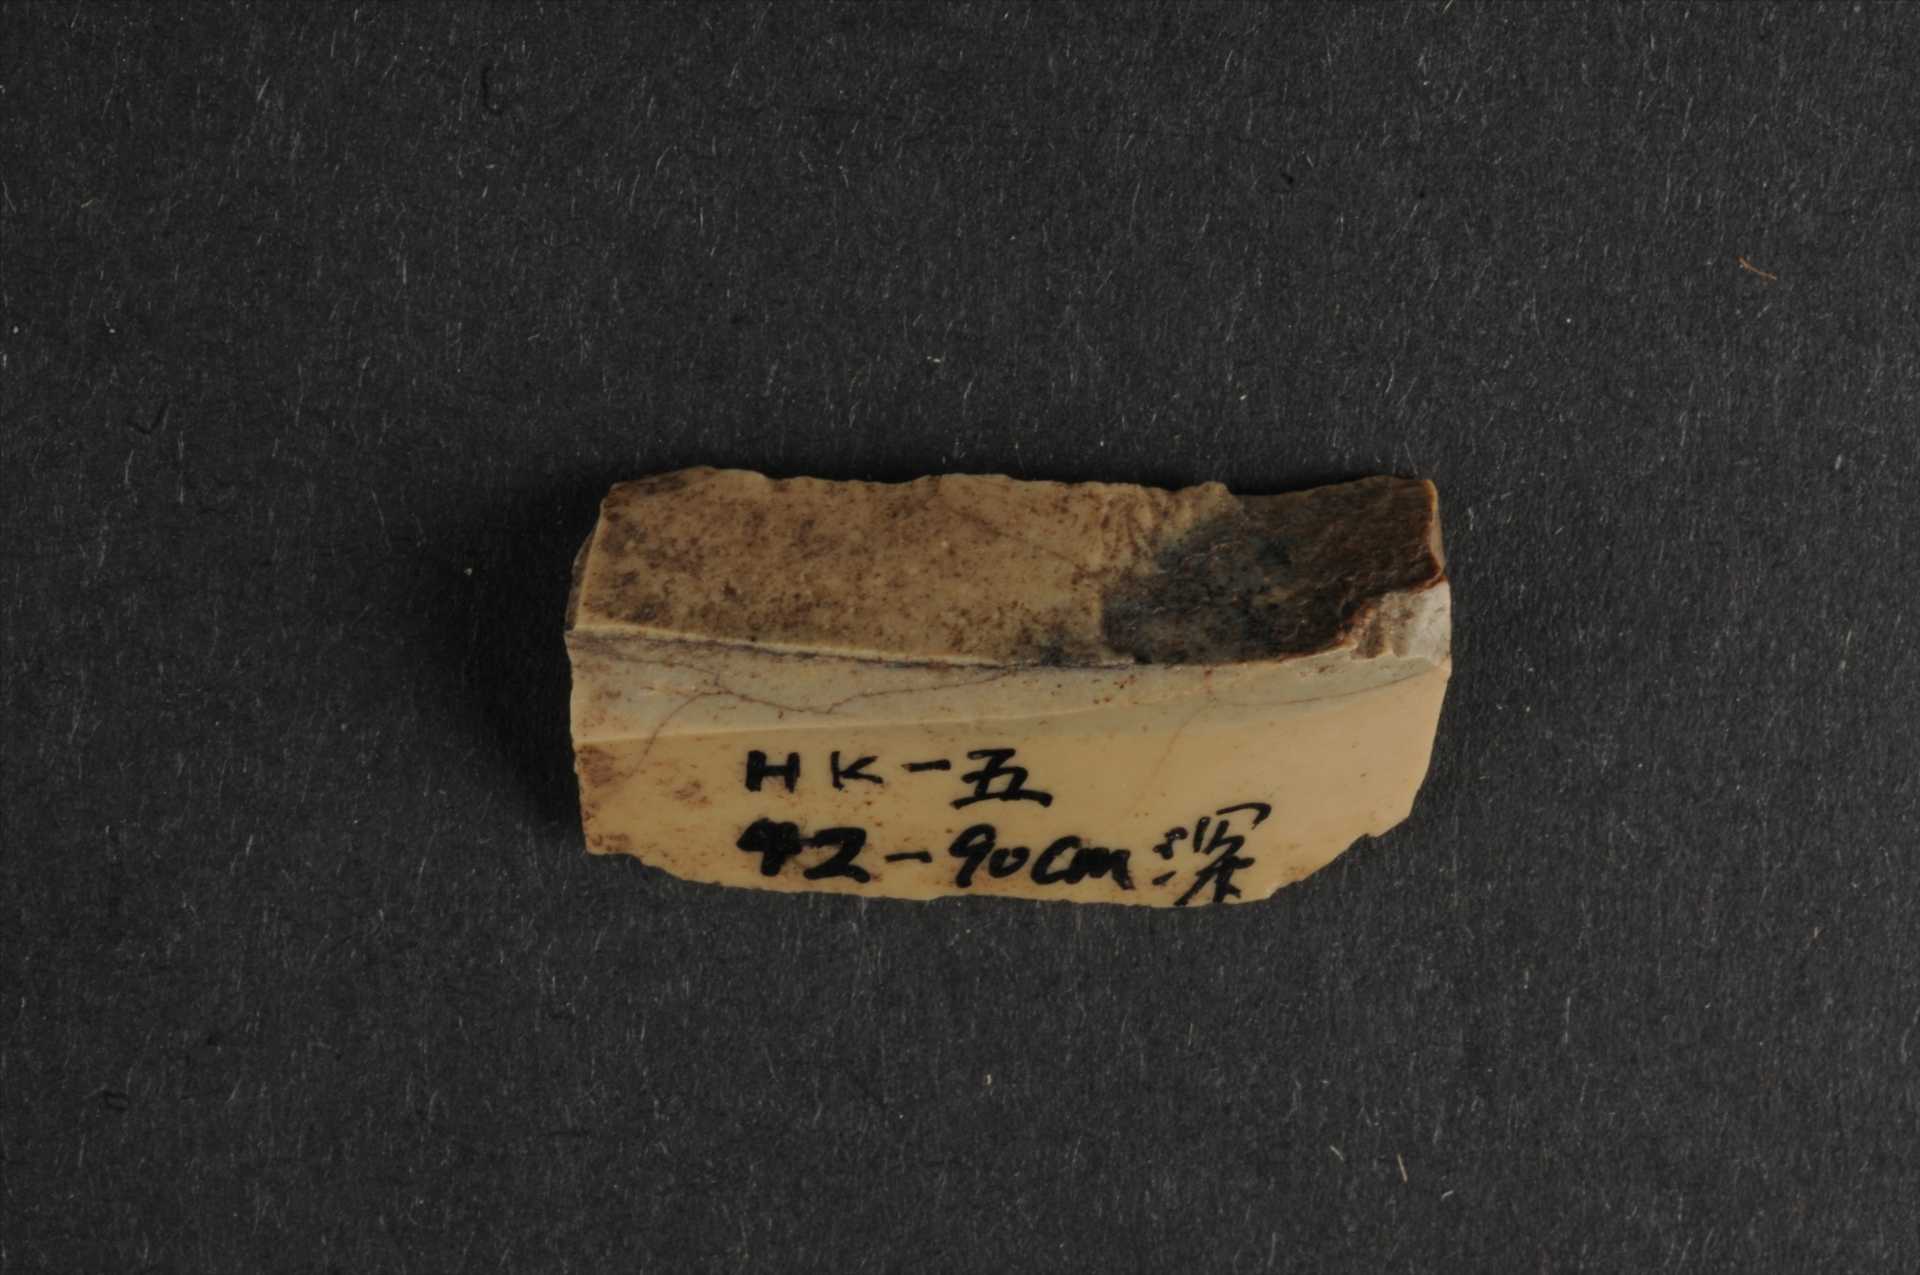 HK-五
42-90cm深